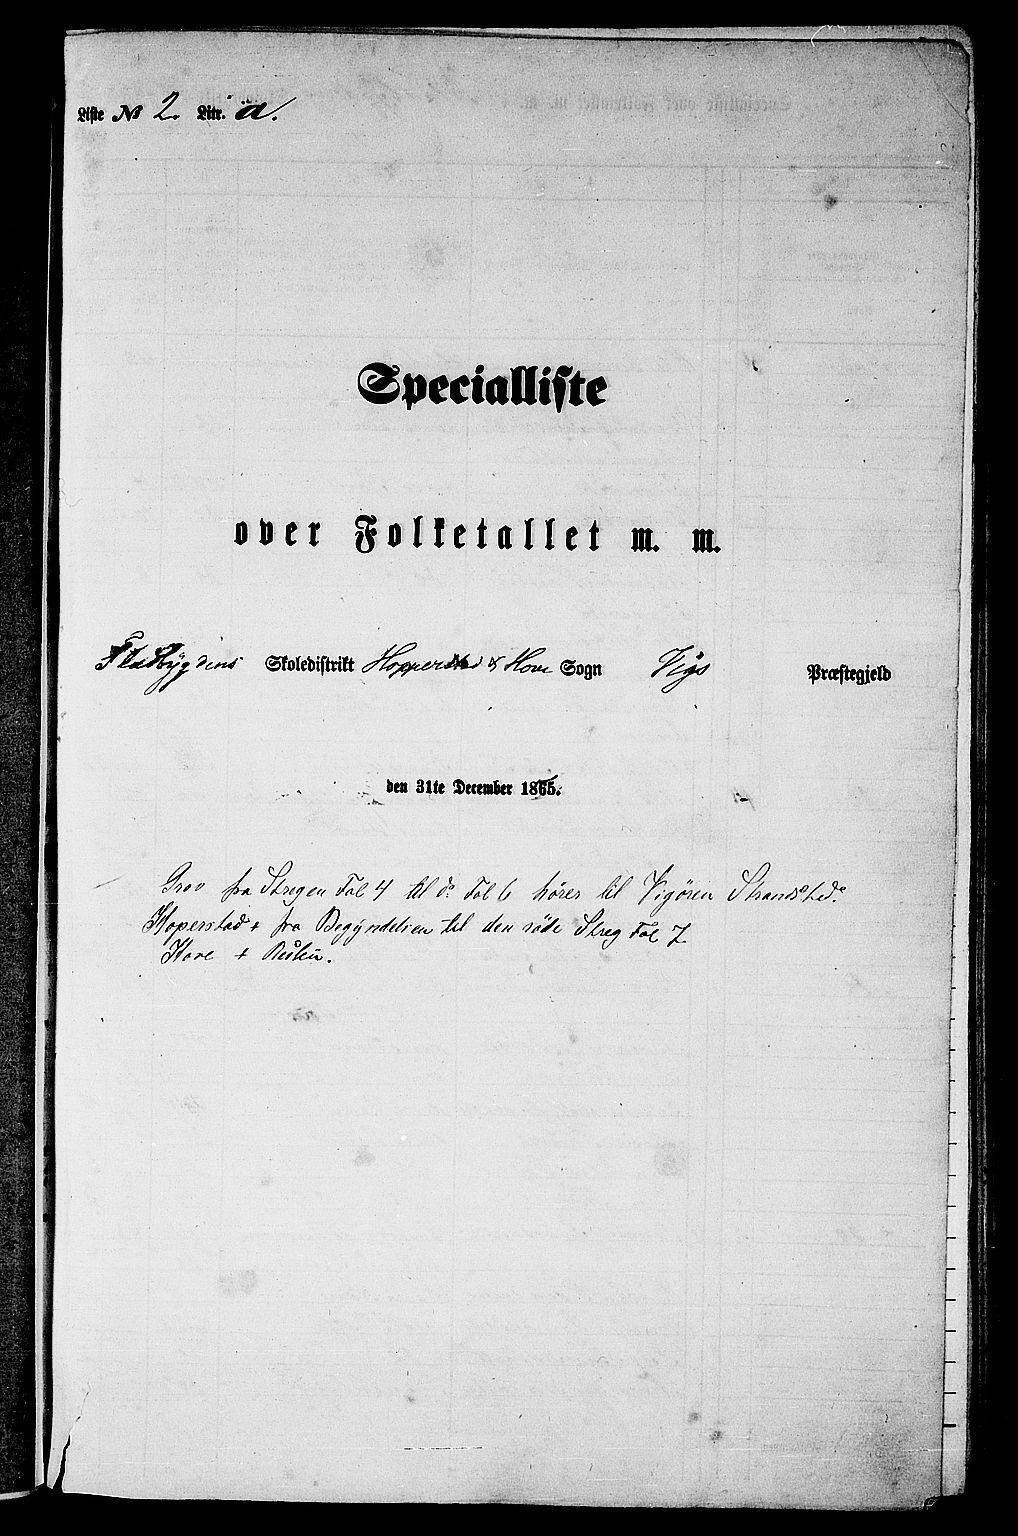 Liste № 2. Litr. a.
Specialliste
over Folketallet m. m.
Fladbygdens Skoledistrikt Hopperstad & Hove Sogn Vigs Præstegjeld
den 31te December 1865.
fra Stregen Fol 4 til do Fol 6 hører til Vigøren Strandsted.
Hoperstad + fra Begyndelsen til den røde Streg Fol 7
Hove + Resten.